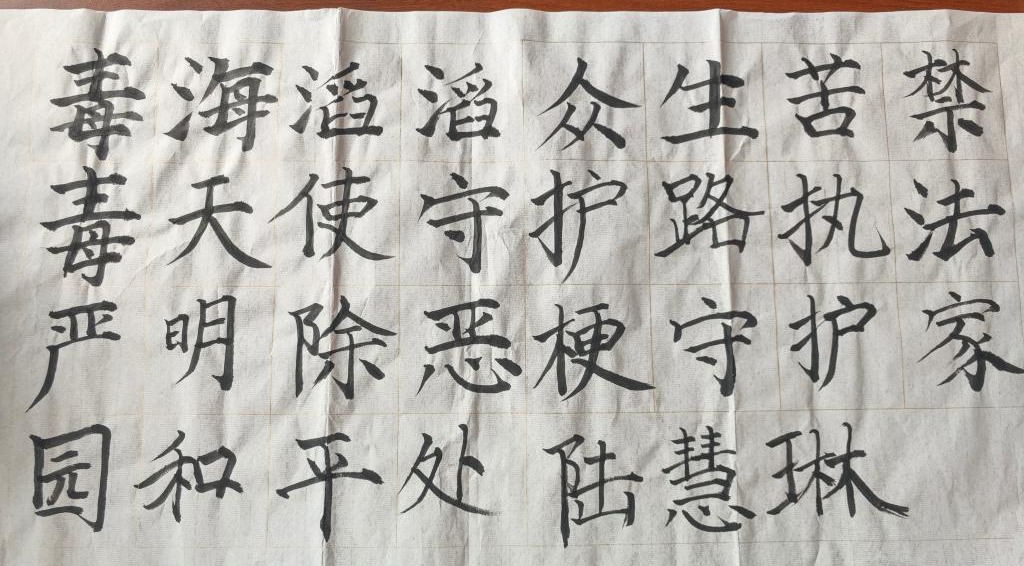 毒海滔滔众生苦禁
毒天使守护路执法
严明除恶梗守护家
园和平处 陆慧琳